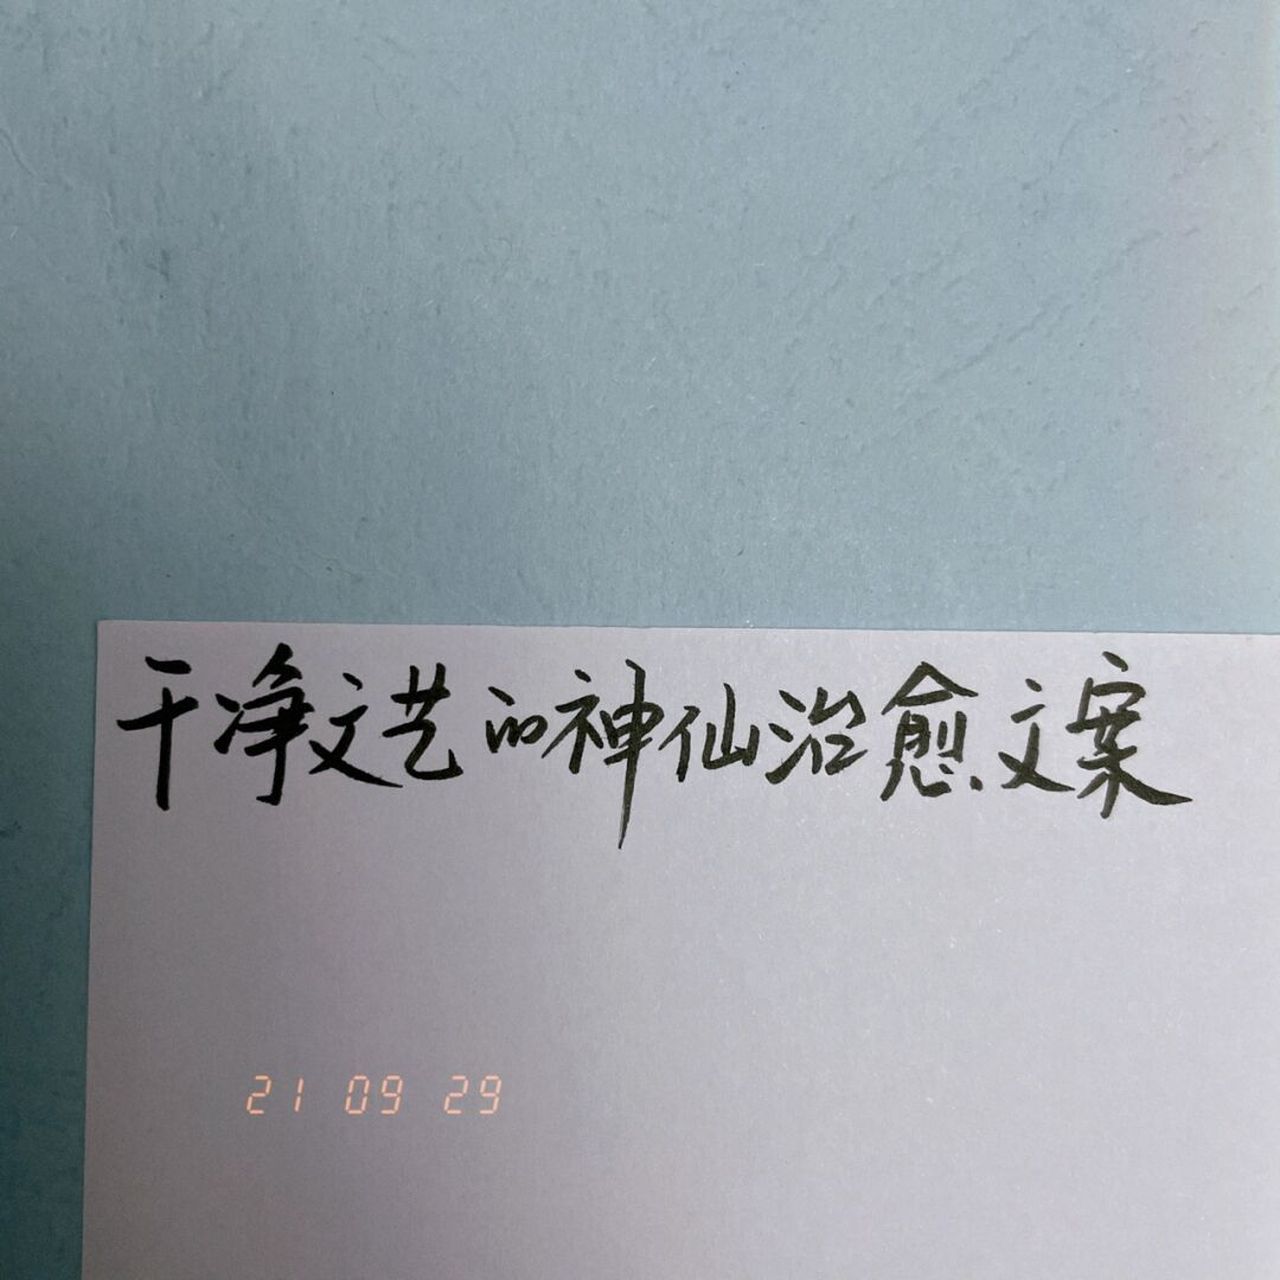 干净文艺的神仙治愈文案
21 09 29